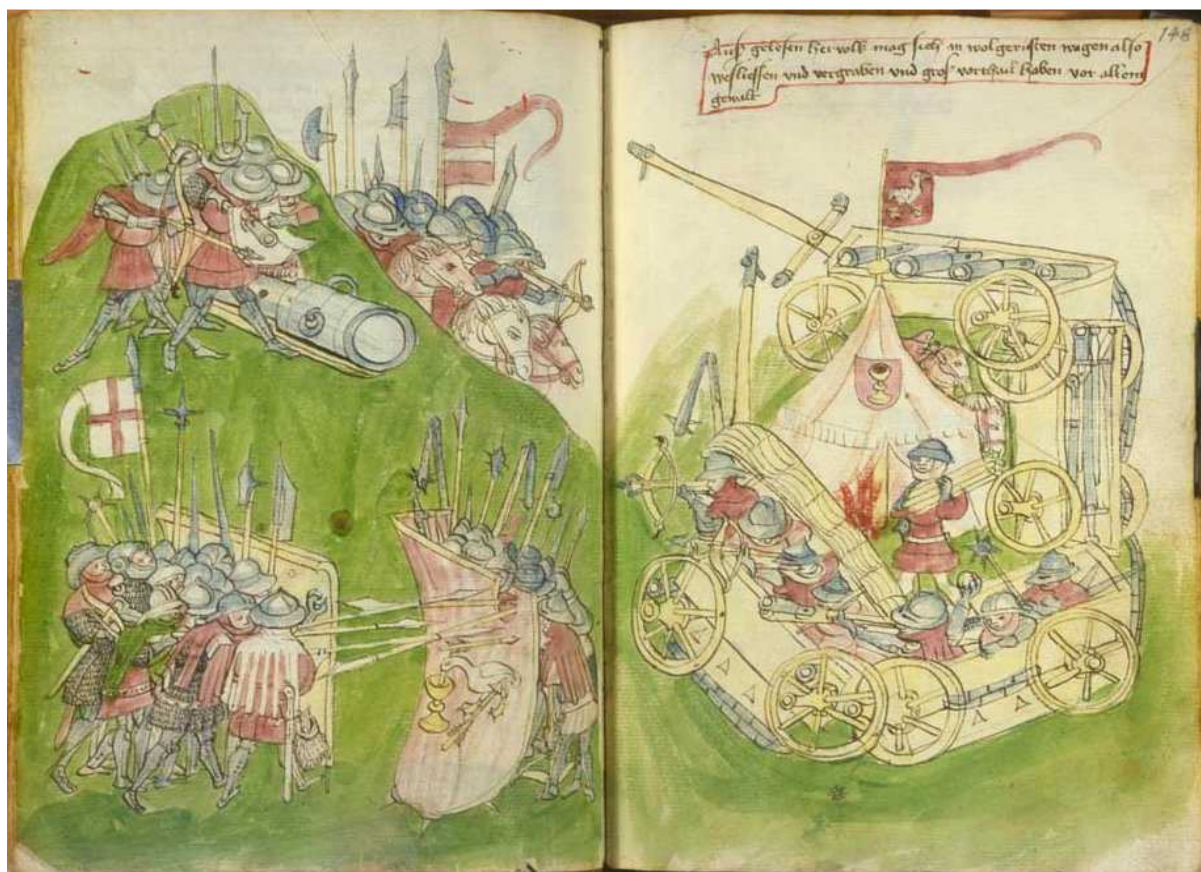 148
Auß gelesen her volk mag sich in wolgeristen wagen also
vesliessen vnd vergraben vnd gros vorthail haben vor allem
gewalt